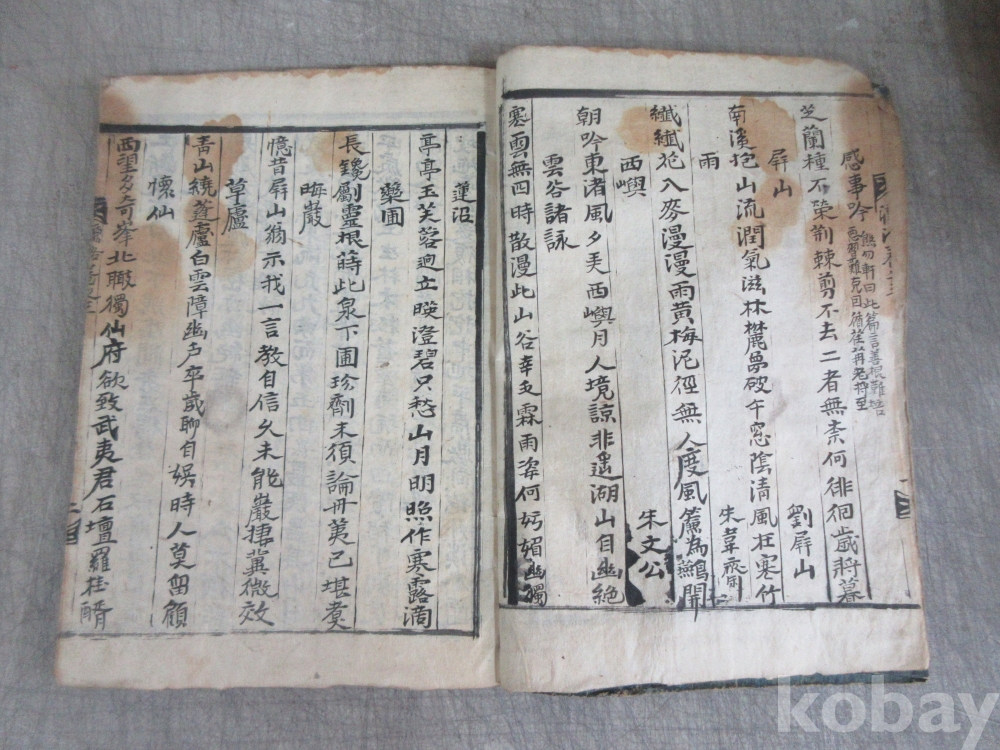 感事吟 熊勿軒曰此篇言善根難培
惡習難克因循荏苒老將至
劉屏山
芝蘭種不榮荊棘剪不去二者無柰何徘徊歲將暮
屏山
朱韋齋
南溪抱山流潤氣滋林麓夢破午窓陰淸風在寒竹
雨
纖纖花入麥漫漫雨黃梅泥徑無人度風簾為鷰開
西嶼
朱文公
朝吟東渚風夕弄西嶼月人境諒非遥湖山自幽絶
雲谷諸詠
寒雲無四時散漫此山谷幸乏霖雨姿何妨媚幽獨
蓮沼
亭亭玉芙蓉逈立暎澄碧只愁山月明照作寒露滴
藥圃
長鑱劚靈根蒔此泉下圃珍劑未須論丹荑已堪煑
晦巖
憶昔屏山翁示我一言教自信久未能巖捿冀微效
草廬
靑山繞蓬廬白雲障幽戶卒歲聊自娛時人莫留顧
懷仙
西望多奇峯北瞰獨仙府欲致武夷君石壇羅桂醑
kobay